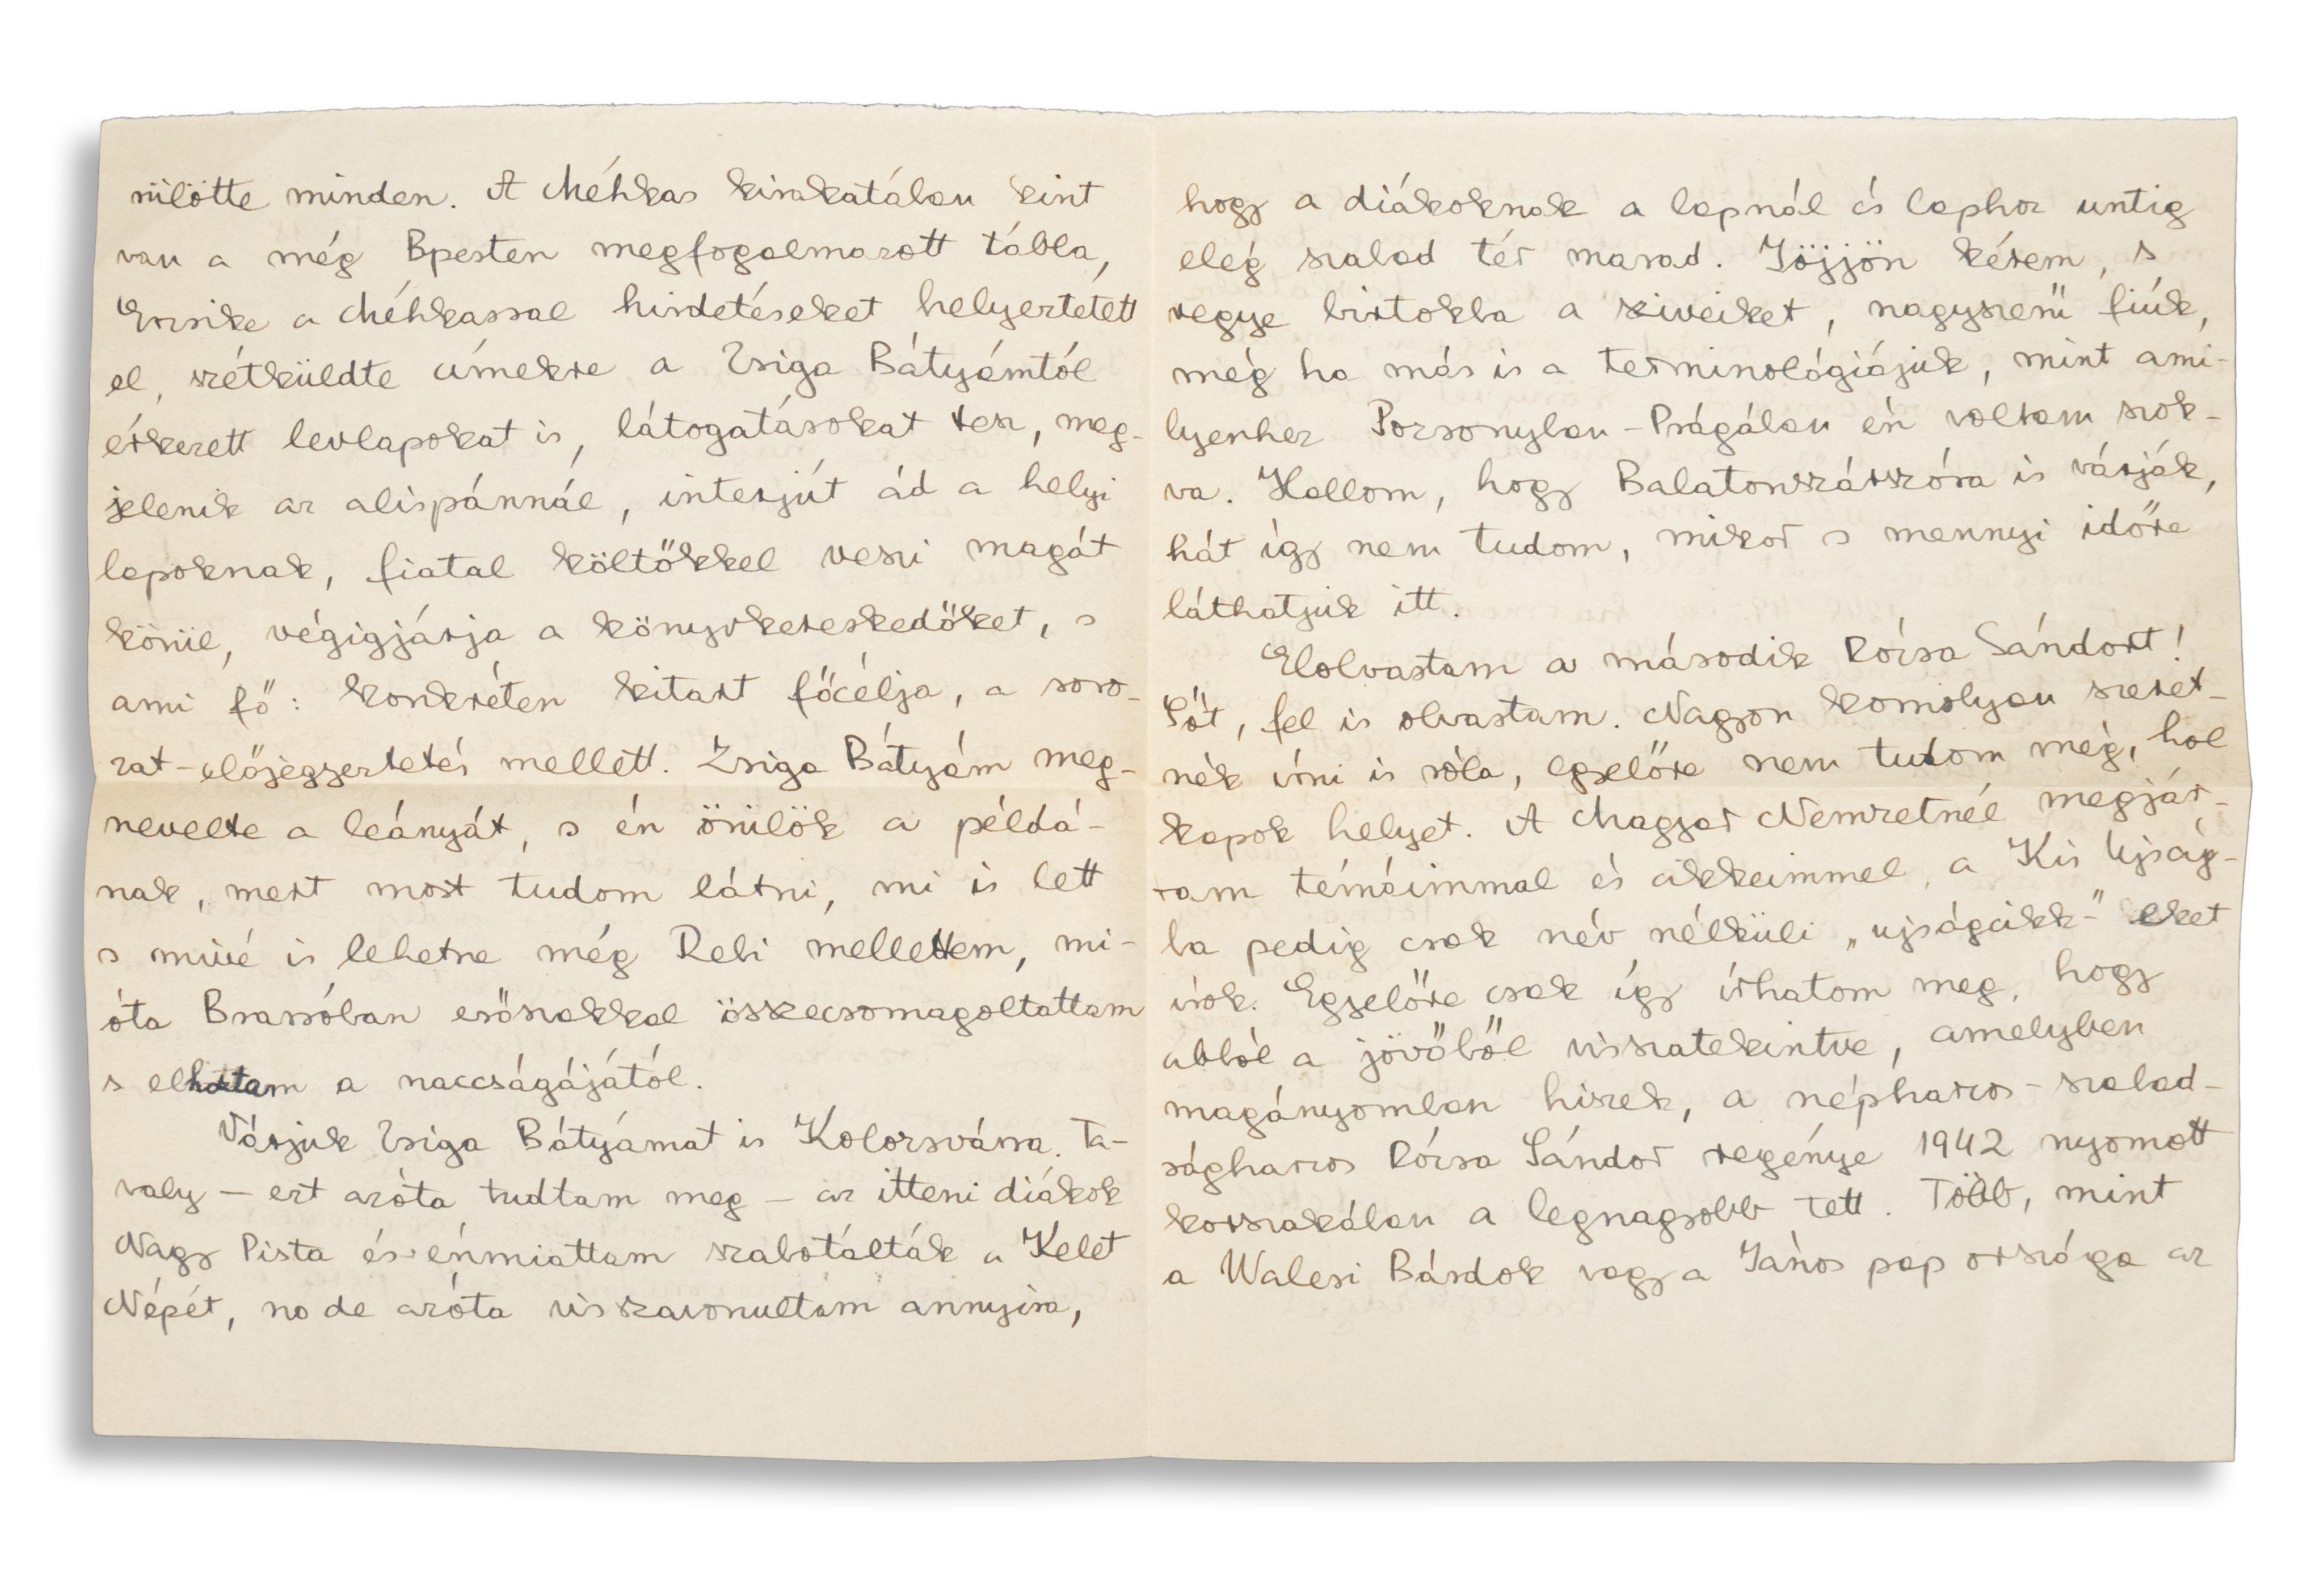 rülötte minden. A Méhkas kirakatában kint
van a még Bpesten megfogalmazott tábla,
Erzsike a Méhkassal hirdetéseket helyeztetett
el, szétküldte címekre a Zsiga Bátyámtól
érkezett levlapokat is, látogatásokat tesz, meg-
jelenik az alispánnál, interjút ád a helyi
lapoknak, fiatal költőkkel veszi magát
körül, végigjárja a könyvkereskedőket, s
ami fő: konkréten kitart főcélja, a soro-
zat-előjegyeztetés mellett. Zsiga Bátyám meg-
nevelte a leányát, s én örülök a példá-
nak, mert most tudom látni, mi is lett
s mivé is lehetne még Rebi mellettem, mi-
óta Brassóban erőszakkal összecsomagoltattam
s elhoztam a naccságájától.
Várjuk Zsiga Bátyámat is Kolozsvárra. Ta-
valy – ezt azóta tudtam meg – az itteni diákok
Nagy Pista és énmiattam szabotálták a Kelet
Népét, no de azóta visszavonultam annyira,
hogy a diákoknak a lapnál és laphoz untig
elég szabad tér marad. Jöjjön kérem, s
vegye birtokba a sziveiket, nagyszerű fiúk,
még ha más is a terminológiájuk, mint ami-
lyenhez Pozsonyban-Prágában én voltam szok-
va. Hallom, hogy Balatonszárszóra is várják,
hát így nem tudom, mikor s mennyi időre
láthatjuk itt.
Elolvastam a második Rózsa Sándort!
Sőt, fel is olvastam. Nagyon komolyan szeret-
nék írni is róla, egyelőre nem tudom még, hol
kapok helyet. A Magyar Nemzetnél megjár-
tam témáimmal és cikkeimmel, a Kis Ujság-
ba pedig csak név nélküli „ujságcikk-"eket
írok. Egyelőre csak így írhatom meg, hogy
abból a jövőből visszatekintve, amelyben
magányomban hiszek, a népharcos-szabad-
ságharcos Rózsa Sándor regénye 1942 nyomott
korszakában a legnagyobb tett. Több, mint
a Walesi Bárdok vagy a János pap országa az